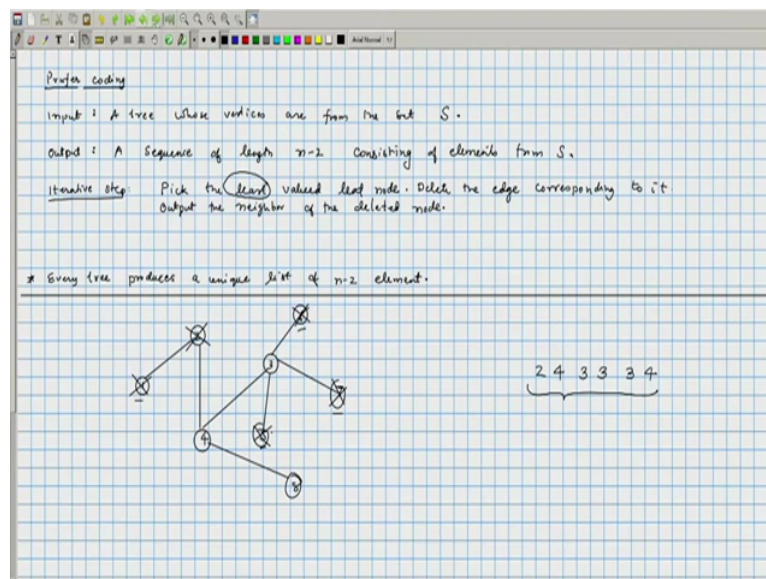 Arial Normal 12
Prufer coding
Input : A tree whose vertices are from the set S.
Output : A Sequence of length n-2 consisting of elements from S.
Iterative step: Pick the least valued leaf node. Delete the edge corresponding to it.
Output the neighbor of the deleted node.
* Every tree produces a unique list of n-2 element.
2
3
2 4 3 3 3 4
4
8